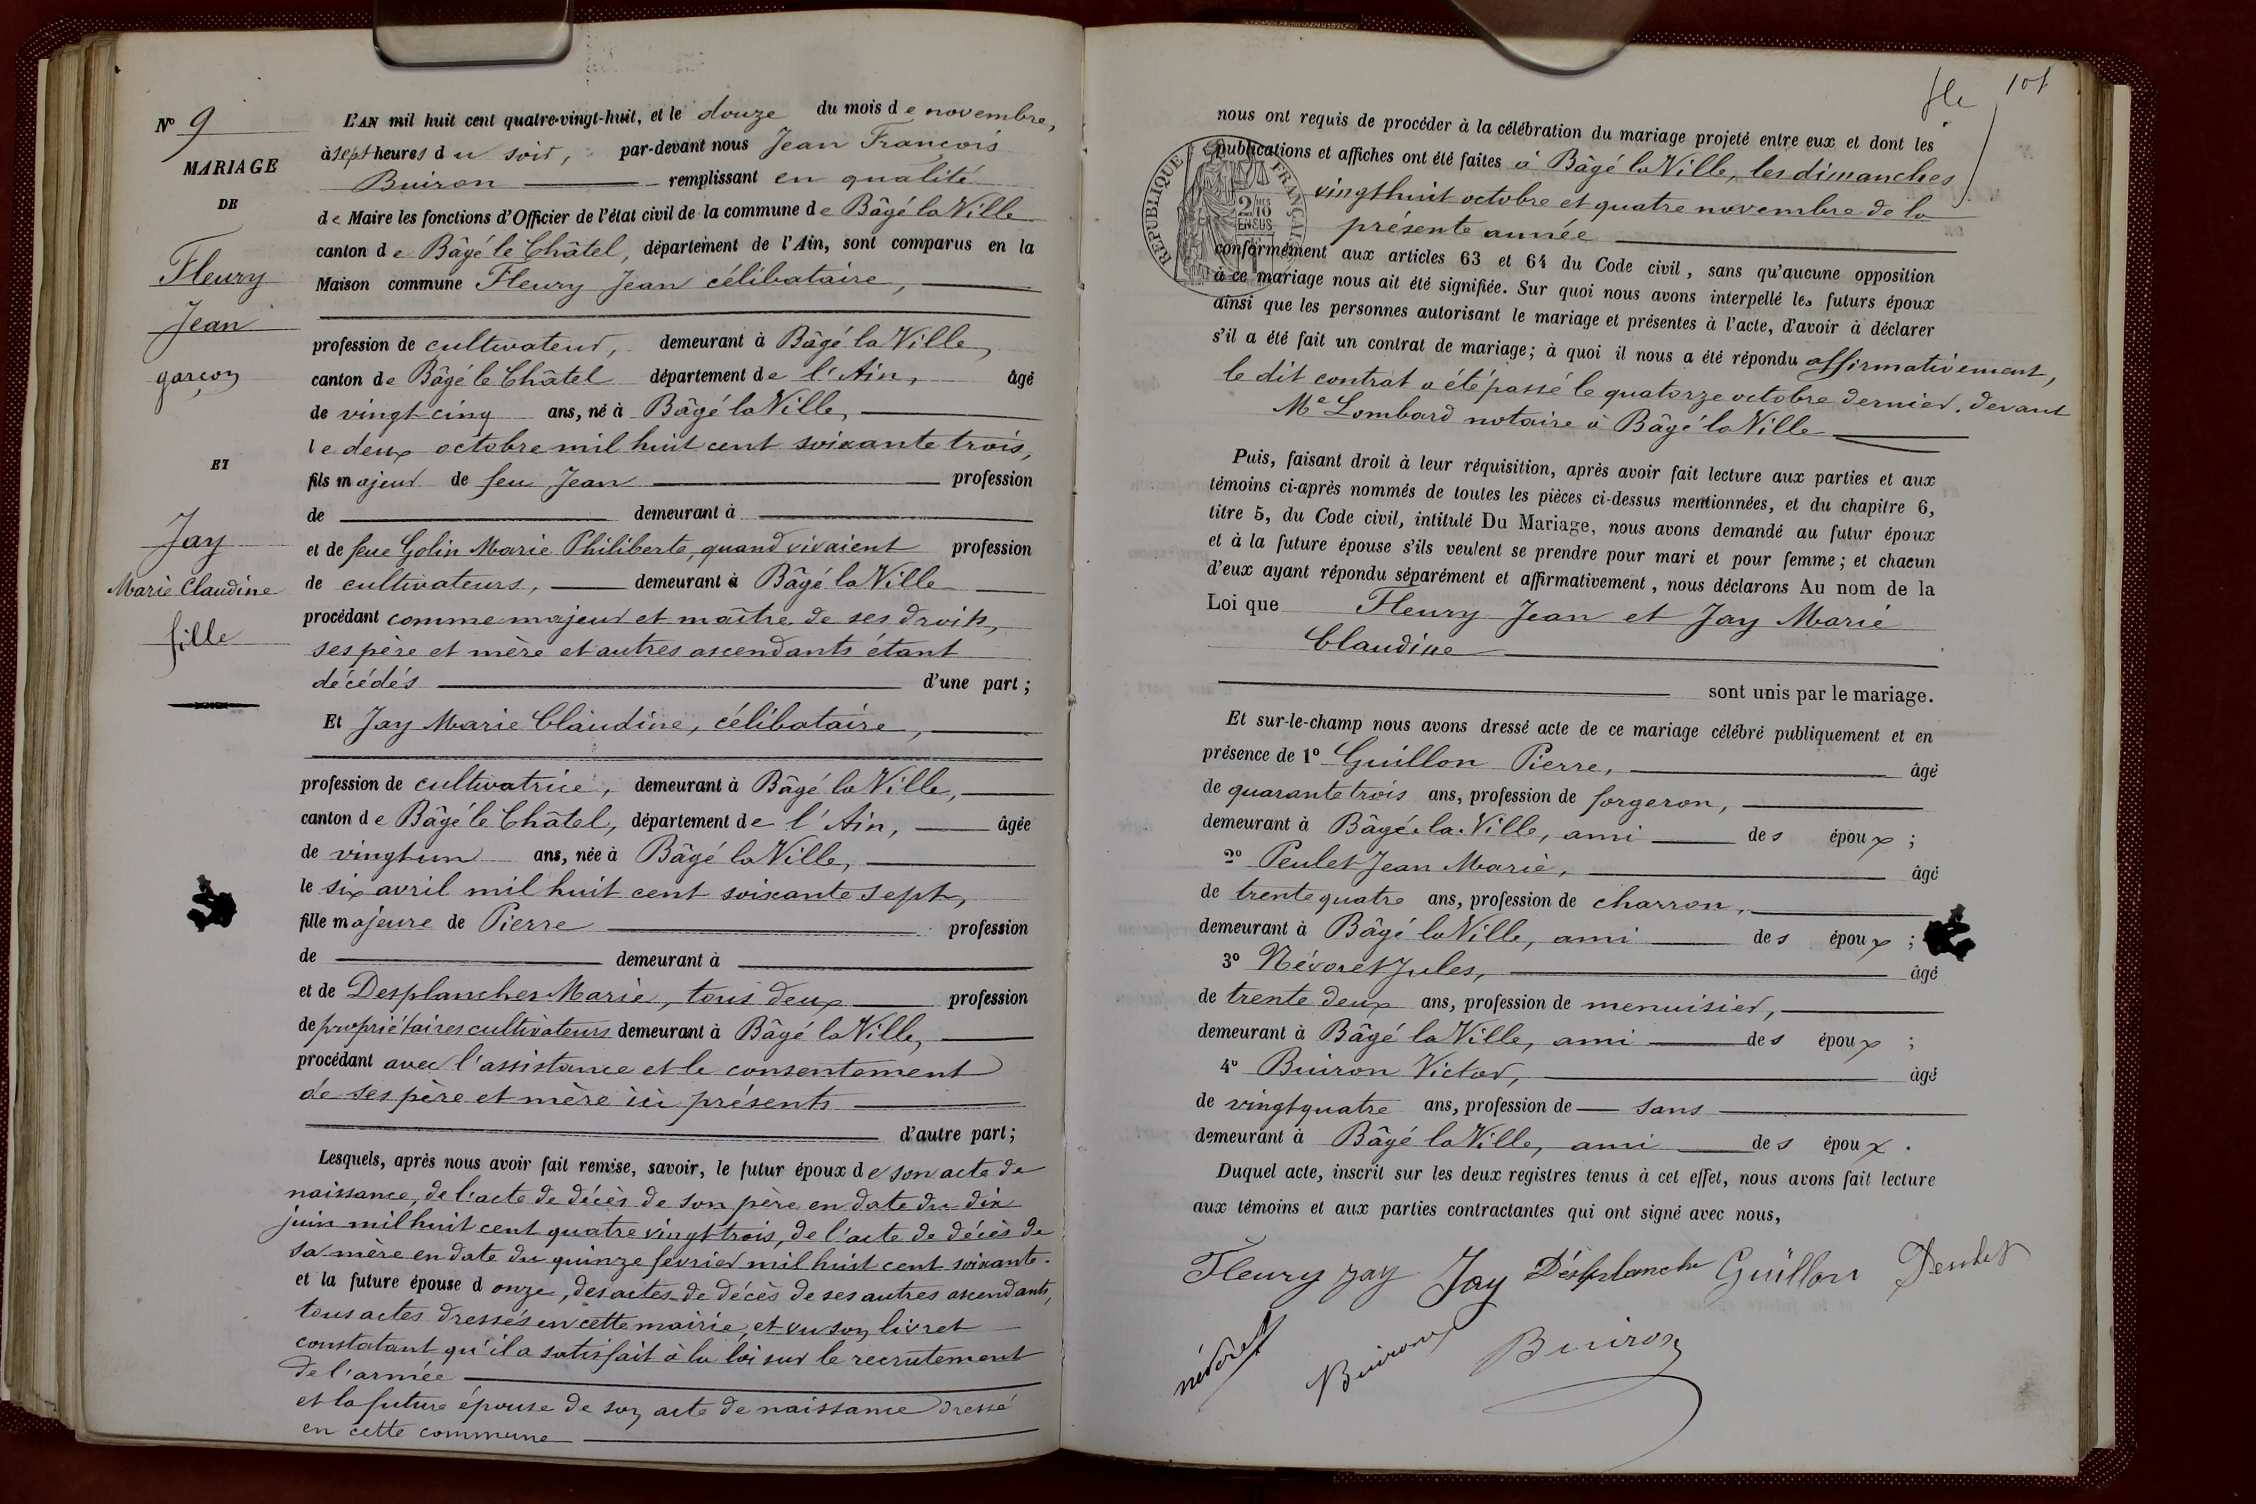 N° 9
MARIAGE
DE
Fleury
Jean
garçon
ET
Jay
Marie Claudine
fille
L'AN mil huit cent quatre-vingt-huit, et le douze du mois de novembre,
à sept heures du soir, par-devant nous Jean François
Buiron remplissant en qualité
de Maire les fonctions d'Officier de l'état civil de la commune de Bâgé la Ville
canton de Bâgé le Châtel, département de l'Ain, sont comparus en la
Maison commune Fleury Jean célibataire,
profession de cultivateur, demeurant à Bâgé la Ville,
canton de Bâgé le Châtel département de l'Ain, âgé
de vingt cinq ans, né à Bâgé la Ville,
le deux octobre mil huit cent soixante trois,
fils majeur de feu Jean profession
de demeurant à
et de feue Golin Marie Philiberte, quand vivaient profession
de cultivateurs, demeurant à Bâgé la Ville
procédant comme majeur et maître de ses droits,
ses père et mère et autres ascendants étant
décédés d'une part;
Et Jay Marie Claudine, célibataire,
profession de cultivatrice, demeurant à Bâgé la Ville,
canton de Bâgé le Châtel, département de l'Ain, âgée
de vingt un ans, née à Bâgé la Ville,
le six avril mil huit cent soixante sept,
fille majeure de Pierre profession
de demeurant à
et de Desplanches Marie, tous deux profession
de propriétaires cultivateurs demeurant à Bâgé la Ville,
procédant avec l'assistance et le consentement
de ses père et mère ici présents
d'autre part;
Lesquels, après nous avoir fait remise, savoir, le futur époux de son acte de
naissance, de l'acte de décès de son père en date du dix
juin mil huit cent quatre vingt trois, de l'acte de décès de
sa mère en date du quinze fevrier mil huit cent soixante.
et la future épouse d onze, des actes de décès de ses autres ascendants,
tous actes dressés en cette mairie, et vu son livret
constatant qu'il a satisfait à la loi sur le recrutement
de l'armée
et la future épouse de son acte de naissance dressé
en cette commune
101
RÉPUBLIQUE FRANÇAISE
2/10
EN SUS
nous ont requis de procéder à la célébration du mariage projeté entre eux et dont les
publications et affiches ont été faites à Bâgé la Ville, les dimanches
vingt huit octobre et quatre novembre de la
présente année
conformément aux articles 63 et 64 du Code civil, sans qu'aucune opposition
à ce mariage nous ait été signifiée. Sur quoi nous avons interpellé les futurs époux
ainsi que les personnes autorisant le mariage et présentes à l'acte, d'avoir à déclarer
s'il a été fait un contrat de mariage; à quoi il nous a été répondu affirmativement,
le dit contrat a été passé le quatorze octobre dernier. devant
Me Lombard notaire à Bâgé la Ville
Puis, faisant droit à leur réquisition, après avoir fait lecture aux parties et aux
témoins ci-après nommés de toutes les pièces ci-dessus mentionnées, et du chapitre 6,
titre 5, du Code civil, intitulé Du Mariage, nous avons demandé au futur époux
et à la future épouse s'ils veulent se prendre pour mari et pour femme; et chacun
d'eux ayant répondu séparément et affirmativement, nous déclarons Au nom de la
Loi que Fleury Jean et Jay Marie
Claudine
sont unis par le mariage.
Et sur-le-champ nous avons dressé acte de ce mariage célébré publiquement et en
présence de 1° Guillon Pierre, âgé
de quarante trois ans, profession de forgeron,
demeurant à Bâgé-la-Ville, ami des époux;
2° Peulet Jean Marie, âgé
de trente quatre ans, profession de charron,
demeurant à Bâgé la Ville, ami des époux;
3° Névoret Jules, âgé
de trente deux ans, profession de menuisier,
demeurant à Bâgé la Ville, ami des époux;
4° Buiron Victor, âgé
de vingt quatre ans, profession de sans
demeurant à Bâgé la Ville, ami des époux.
Duquel acte, inscrit sur les deux registres tenus à cet effet, nous avons fait lecture
aux témoins et aux parties contractantes qui ont signé avec nous,
Fleury Jay Jay Désplanche Guillon Peulet
névoret Buiron Buiron